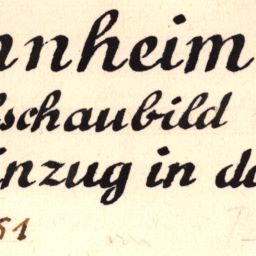 nnheim
schaubild
inzug in d
51